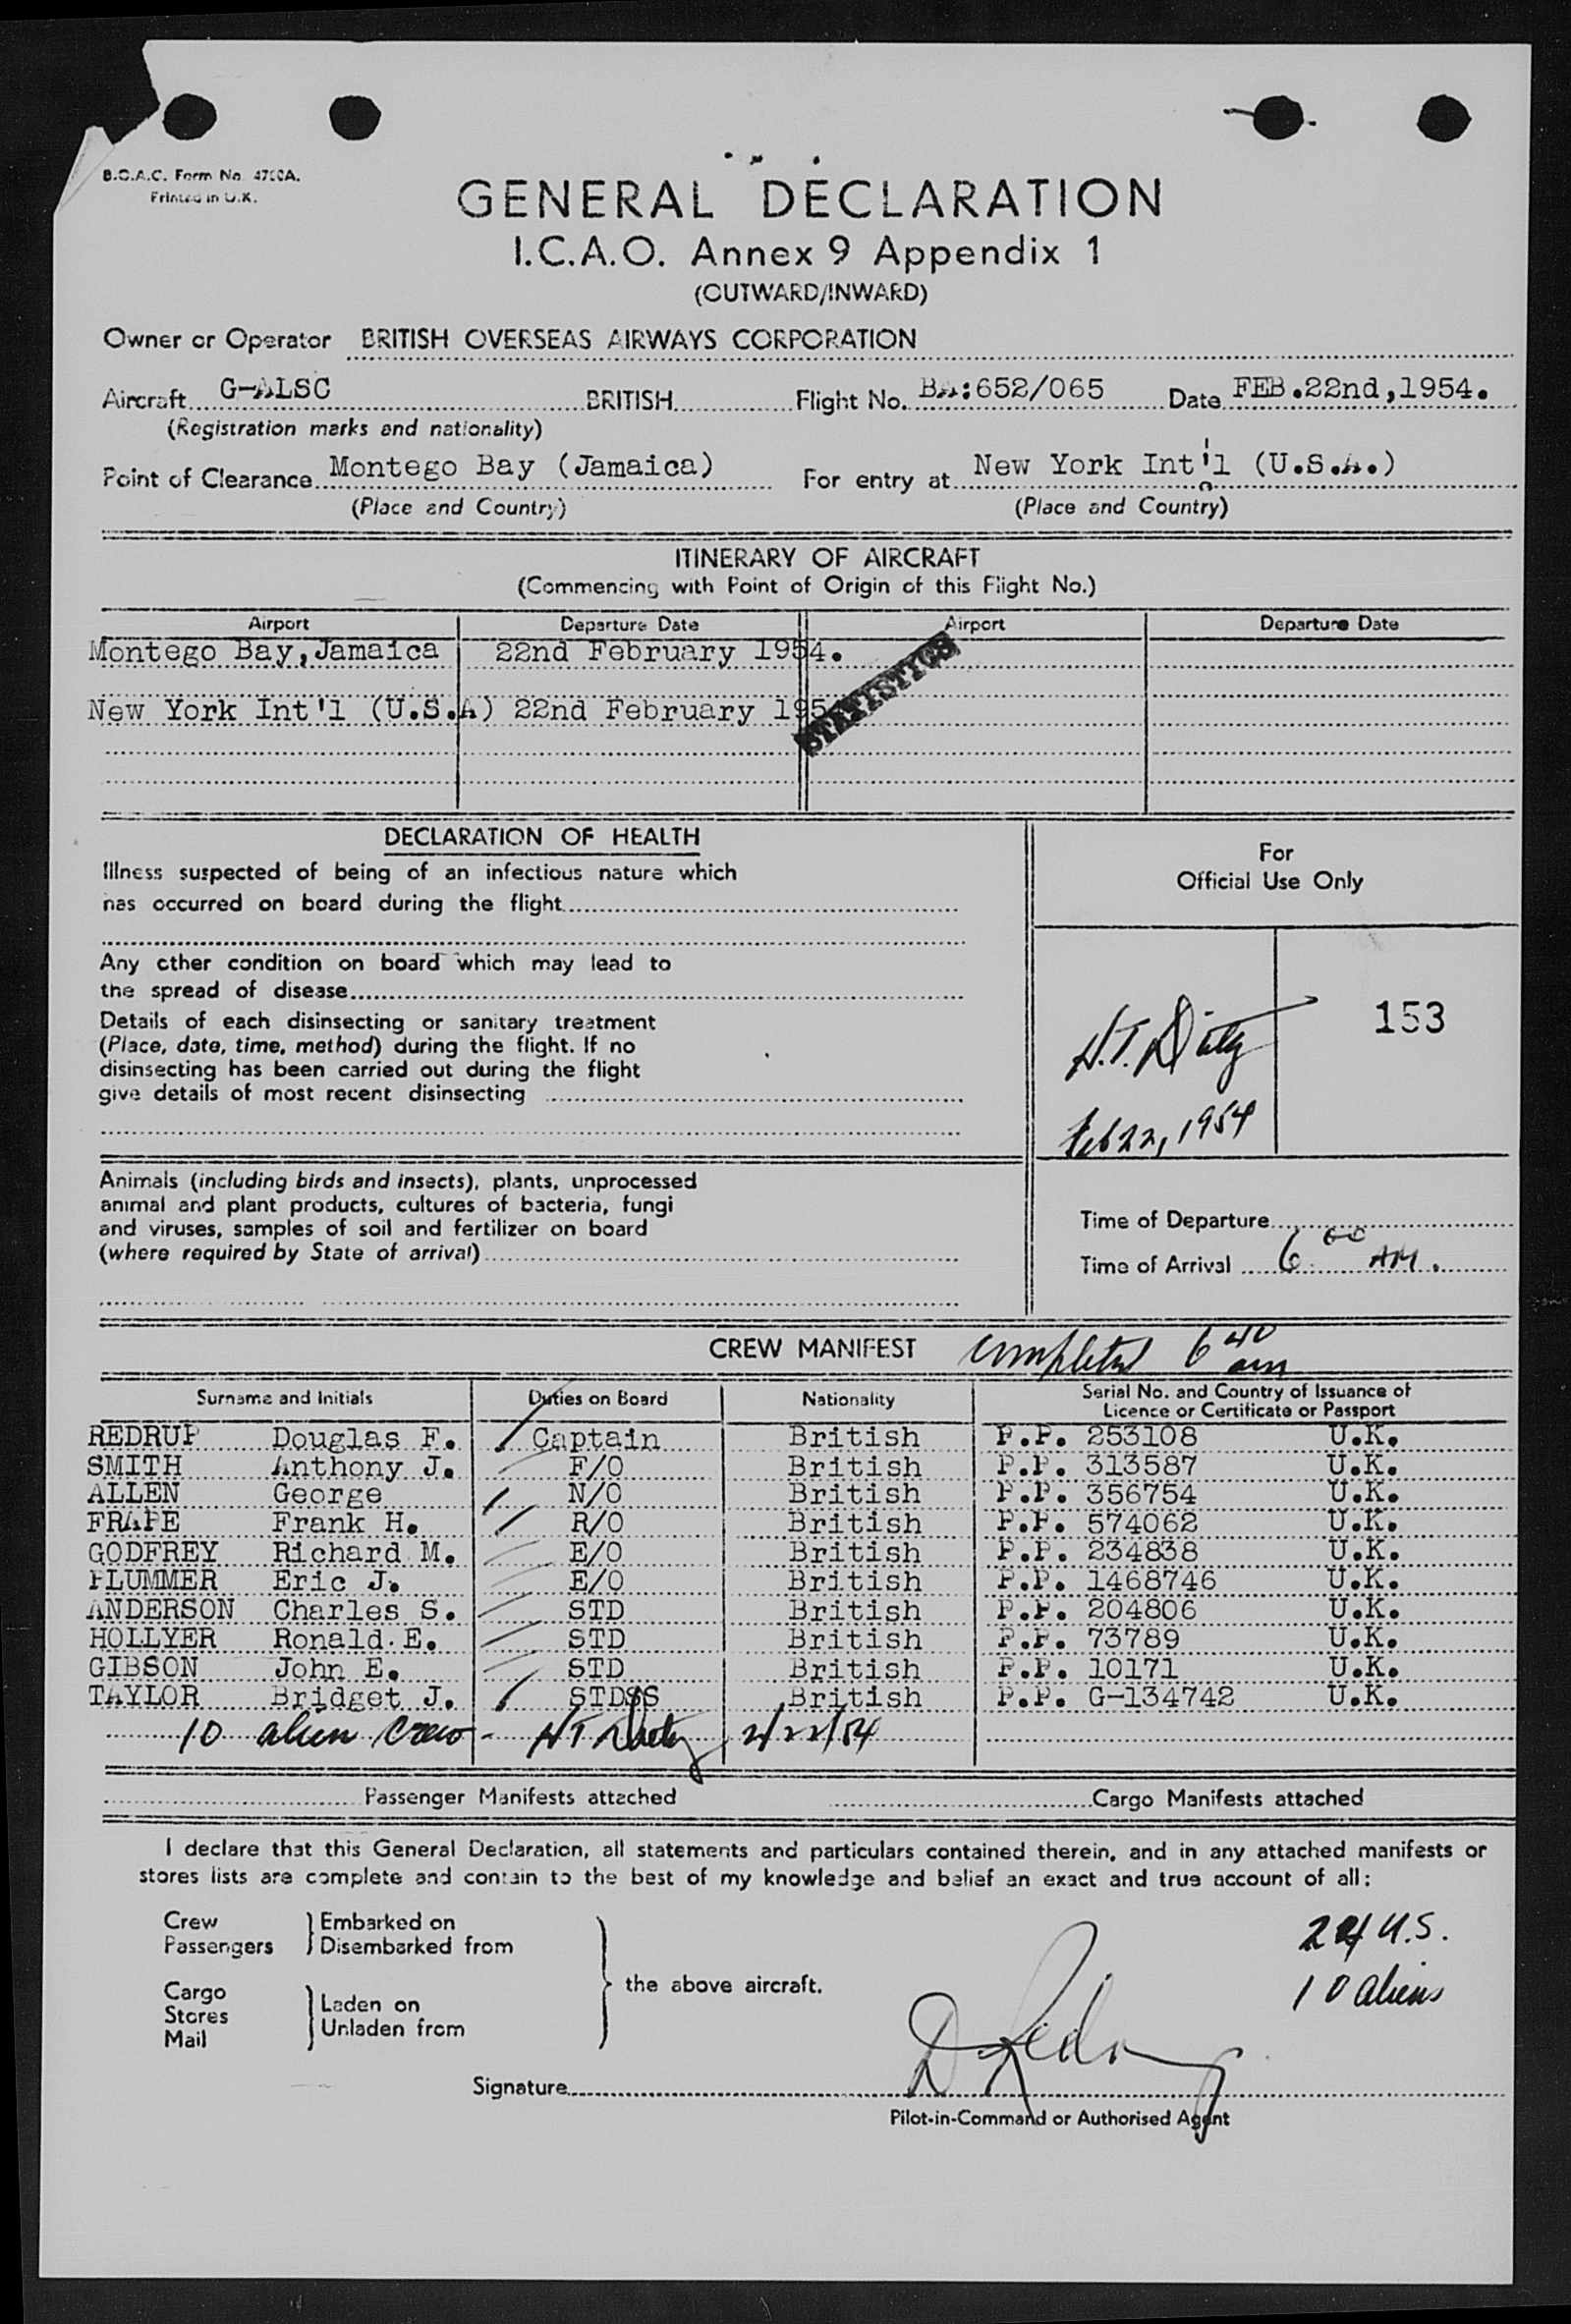 B.O.A.C. Form No. 4700A.
Printed in U.K.
GENERAL DECLARATION
I.C.A.O. Annex 9 Appendix 1
(OUTWARD/INWARD)
Owner or Operator BRITISH OVERSEAS AIRWAYS CORPORATION
Aircraft G-ALSC BRITISH Flight No. BA:652/065 Date FEB.22nd,1954.
(Registration marks and nationality)
Point of Clearance Montego Bay (Jamaica) For entry at New York Int'l (U.S.A.)
(Place and Country) (Place and Country)
ITINERARY OF AIRCRAFT
(Commencing with Point of Origin of this Flight No.)
Airport Departure Date Airport Departure Date
Montego Bay, Jamaica 22nd February 1954.
STATISTICS
New York Int'l (U.S.A) 22nd February 195
DECLARATION OF HEALTH
Illness suspected of being of an infectious nature which
has occurred on board during the flight
Any other condition on board which may lead to
the spread of disease
Details of each disinsecting or sanitary treatment
(Place, date, time, method) during the flight. If no
disinsecting has been carried out during the flight
give details of most recent disinsecting
Animals (including birds and insects), plants, unprocessed
animal and plant products, cultures of bacteria, fungi
and viruses, samples of soil and fertilizer on board
(where required by State of arrival)
For
Official Use Only
H.T.
153
Feb 22, 1954
Time of Departure
Time of Arrival 6 00 AM.
CREW MANIFEST completed 6 40 am
Surname and Initials Duties on Board Nationality Serial No. and Country of Issuance of
Licence or Certificate or Passport
REDRUP Douglas F. Captain British P.P. 253108 U.K.
SMITH Anthony J. F/O British P.P. 313587 U.K.
ALLEN George N/O British P.P. 356754 U.K.
FRAPE Frank H. R/O British P.P. 574062 U.K.
GODFREY Richard M. E/O British P.P. 234838 U.K.
PLUMMER Eric J. E/O British P.P. 1468746 U.K.
ANDERSON Charles S. STD British P.P. 204806 U.K.
HOLLYER Ronald E. STD British P.P. 73789 U.K.
GIBSON John E. STD British P.P. 10171 U.K.
TAYLOR Bridget J. STDSS British P.P. G-134742 U.K.
10 alien crew - HT 2/22/54
Passenger Manifests attached Cargo Manifests attached
I declare that this General Declaration, all statements and particulars contained therein, and in any attached manifests or
stores lists are complete and contain to the best of my knowledge and belief an exact and true account of all:
Crew Embarked on
Passengers Disembarked from
the above aircraft.
Cargo Laden on
Stores Unladen from
Mail
24 U.S.
10 aliens
Signature
Pilot-in-Command or Authorised Agent